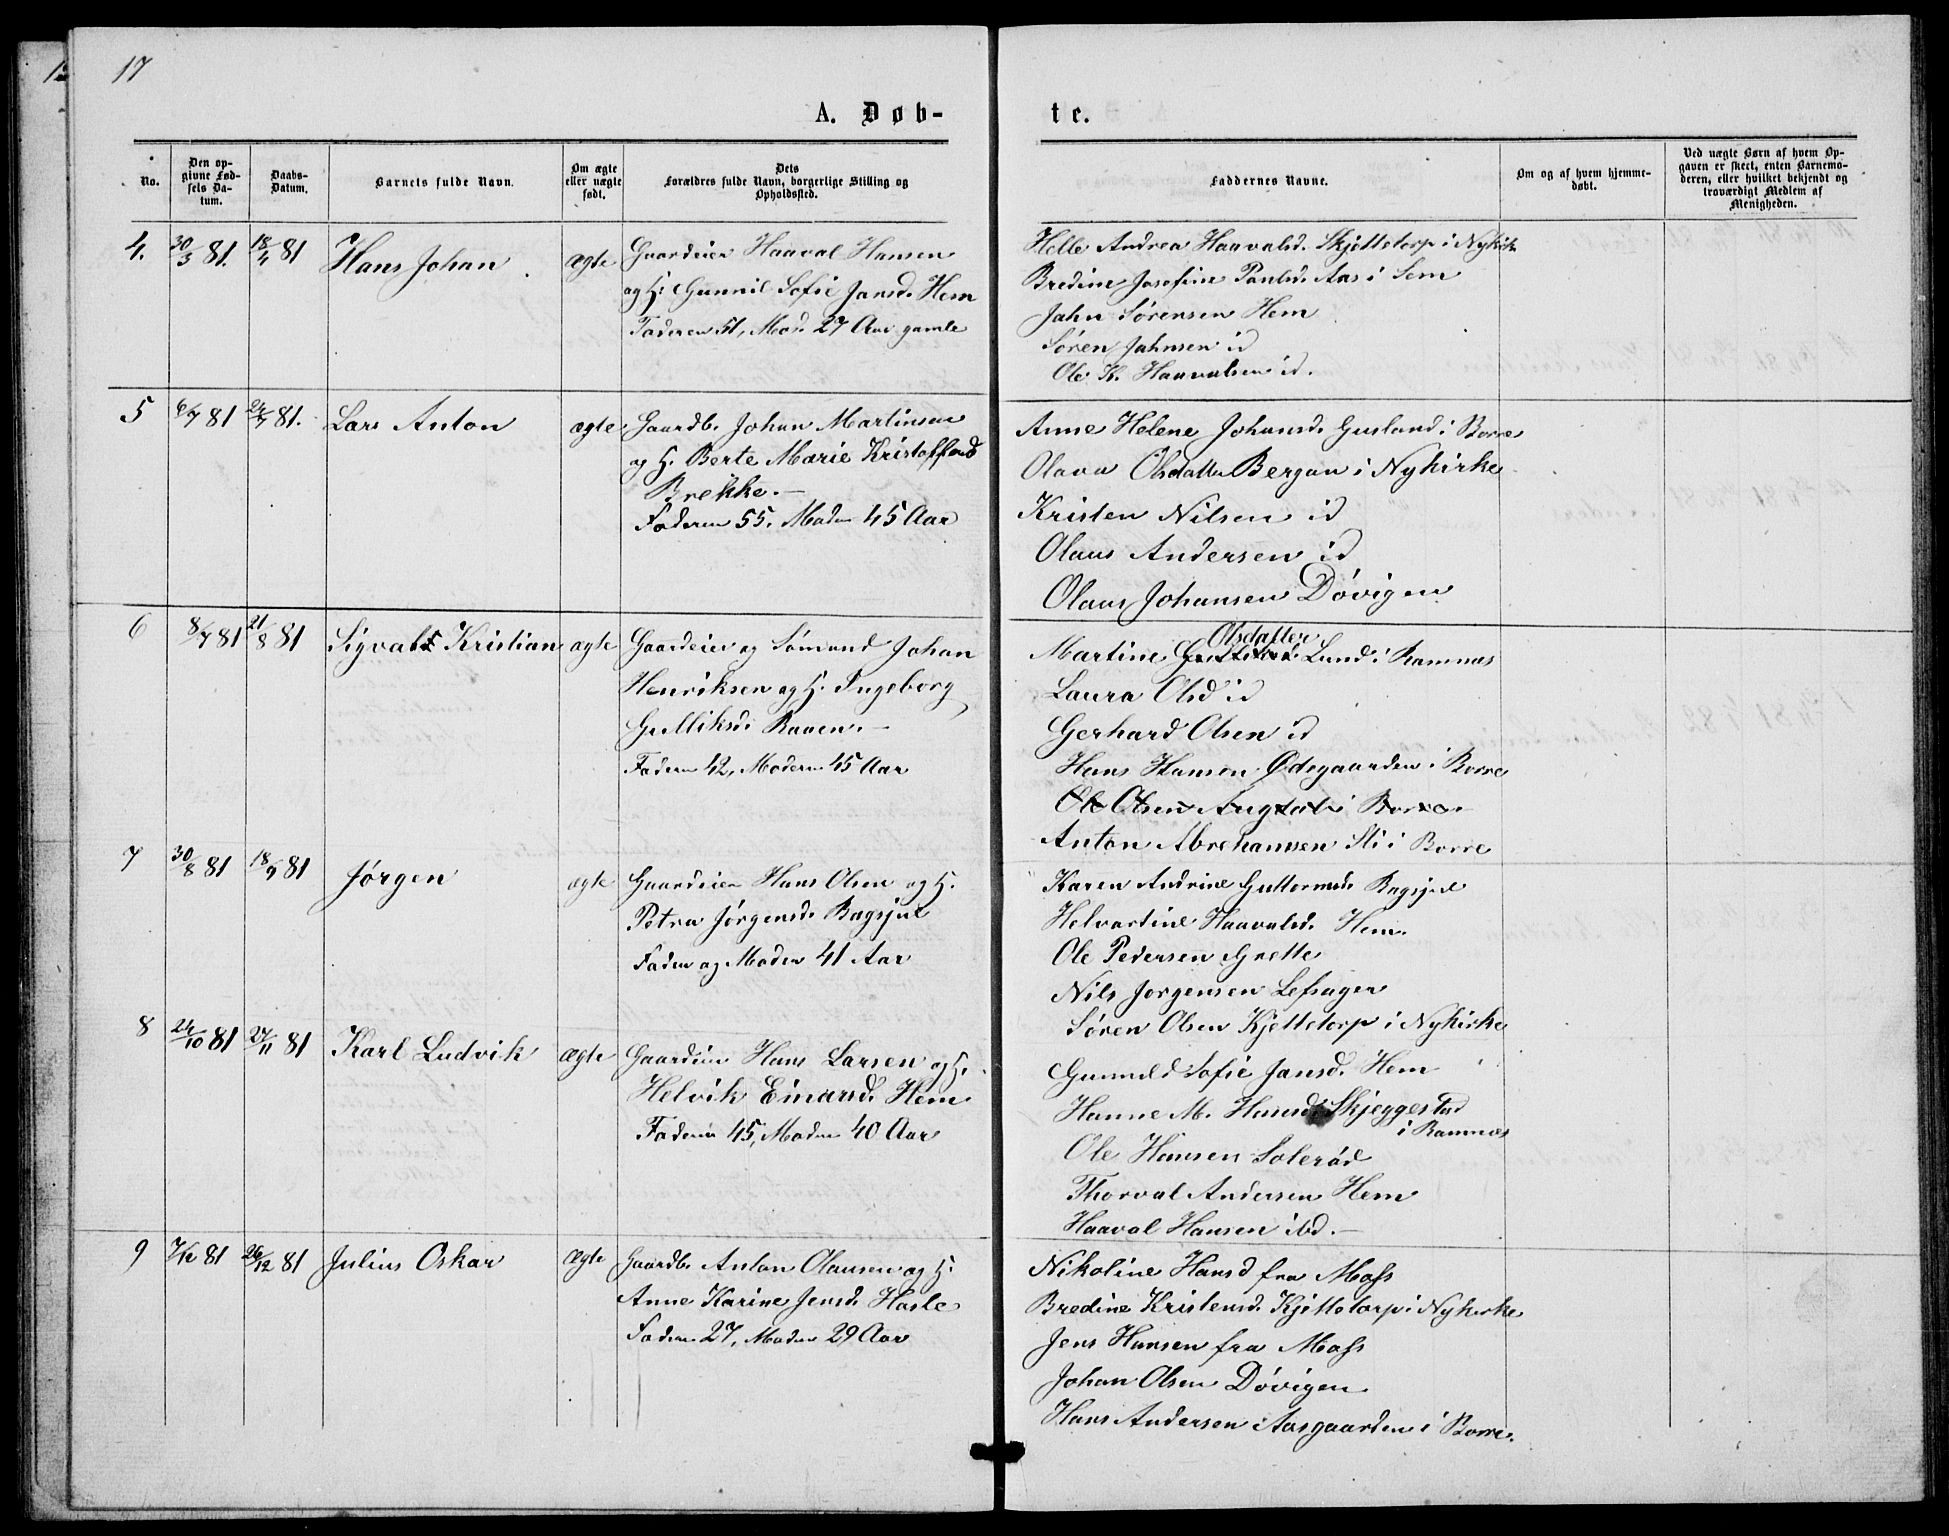 17
A. Døb-
te.
No.
Den op-
givne Fød-
sels Da-
tum.
Daabs-
Datum.
Barnets fulde Navn.
Om ægte
eller uægte
født.
Dets
Forældres fulde Navn, borgerlige Stilling og
Opholdssted.
Faddernes Navne.
Om og af hvem hjemme-
døbt.
Ved uægte Børn af hvem Op-
gaven er skeet, enten Barnemo-
deren, eller hvilket bekjendt og
troværdigt Medlem af
Menigheden.
4. 30/3 81. 18/4 81 Hans Johan ægte
Gaardeier Haaval Hansen
og H. Gunnil Sofie Jansd. Hem
Faderen 51, Mod. 27 Aar gamle
Helle Andrea Haavalsd. Skjettetorp i Nykirk
Bredine Josefine Paulsd. Aas i Sem
Jahn Sørensen Hem
Søren Jahnsen id
Ole K. Haavalsen id.
5 6/7 81 24/7 81. Lars Anton ægte
Gaardb. Johan Martinsen
og H. Berte Marie Kristoffersd
Brekke.—
Faderen 55. Moden 45 Aar
Anne Helene Johansd. Gusland i Borre
Olava Olsdatter Bergan i Nykirke
Kristen Nilsen id
Olaus Andersen id
Olaus Johansen Døvigen
6 8/7 81 21/8 81 Sigvald Kristian ægte
Gaardeier og Sømand Johan
Henriksen og H. Ingeborg
Gulliksd. Raaen.—
Faderen 42, Moderen 45 Aar
Olsdatter
Martine Lund i Ramnæs
Laura Olsd id
Gerhard Olsen id
Hans Hansen Ødegaarden i Borre
Ole Olsen i Borre
Anton Abrehamsen Sti i Borre
7 30/8 81 18/9 81 Jørgen ægte
Gaardeier Hans Olsen og H.
Petra Jørgensd. Bagsjul
Faden og Moden 41 Aar
Karen Andrine Guttormsd. Bagsjul
Helvartine Haavalsd. Hem.
Ole Pedersen Grette
Nils Jørgensen Lefsager
Søren Olsen Kjettetorp i Nykirke
8 24/10 81 27/11 81 Karl Ludvik ægte
Gaardeier Hans Larsen og H.
Helvik Einarsd. Hem
Faderen 45, Moden 40 Aar
Gunnild Sofie Jansd. Hem
Hanne M. Hansd. Skjeggestad
i Ramnæs
Ole Hansen Solerød
Thorval Andersen Hem
Haaval Hansen ibd.—
9 7/12 81 26/12 81 Julius Oskar ægte
Gaardb. Anton Olausen og H.
Anne Karine Jensd. Hasle
Faderen 27, Moden 29 Aar
Nikoline Hansd fra Moss
Bredine Kristensd. Kjettetorp i Nykirke
Jens Hansen fra Moss
Johan Olsen Døvigen
Hans Andersen Aasgaarden i Borre.